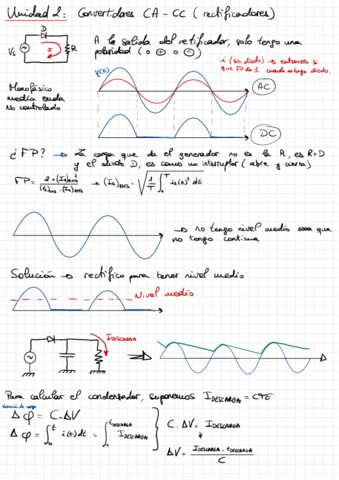 Unidad 2: Convertidores CA-CC (rectificadores)
D
Vs
I
R
A la salida del retificador, solo tengo una
polaridad (o ⊕ o ⊖)
i (sin diodo) → entonces si
que FP da 1 cuando no tengo diodo.
AC
Monofásico
media onda
No controlado
DC
¿FP? → La carga que da el generador no es la R, es R+D
y el diodo D, es como un interruptor (abre y cierra)
→ no tengo nivel medio osea que
no tengo continua
Solución → rectifico para tener nivel medio
Nivel medio
IDESCARGA
Para calcular el condensador, suponemos IDESCARGA = CTE
Variación de carga
Δφ = C·ΔV
Δφ = ∫₀ᵗ i(t)dt = ∫₀^tDESCARGA IDESCARGA
C·ΔV = IDESCARGA
ΔV = IDESCARGA · tDESCARGA / C